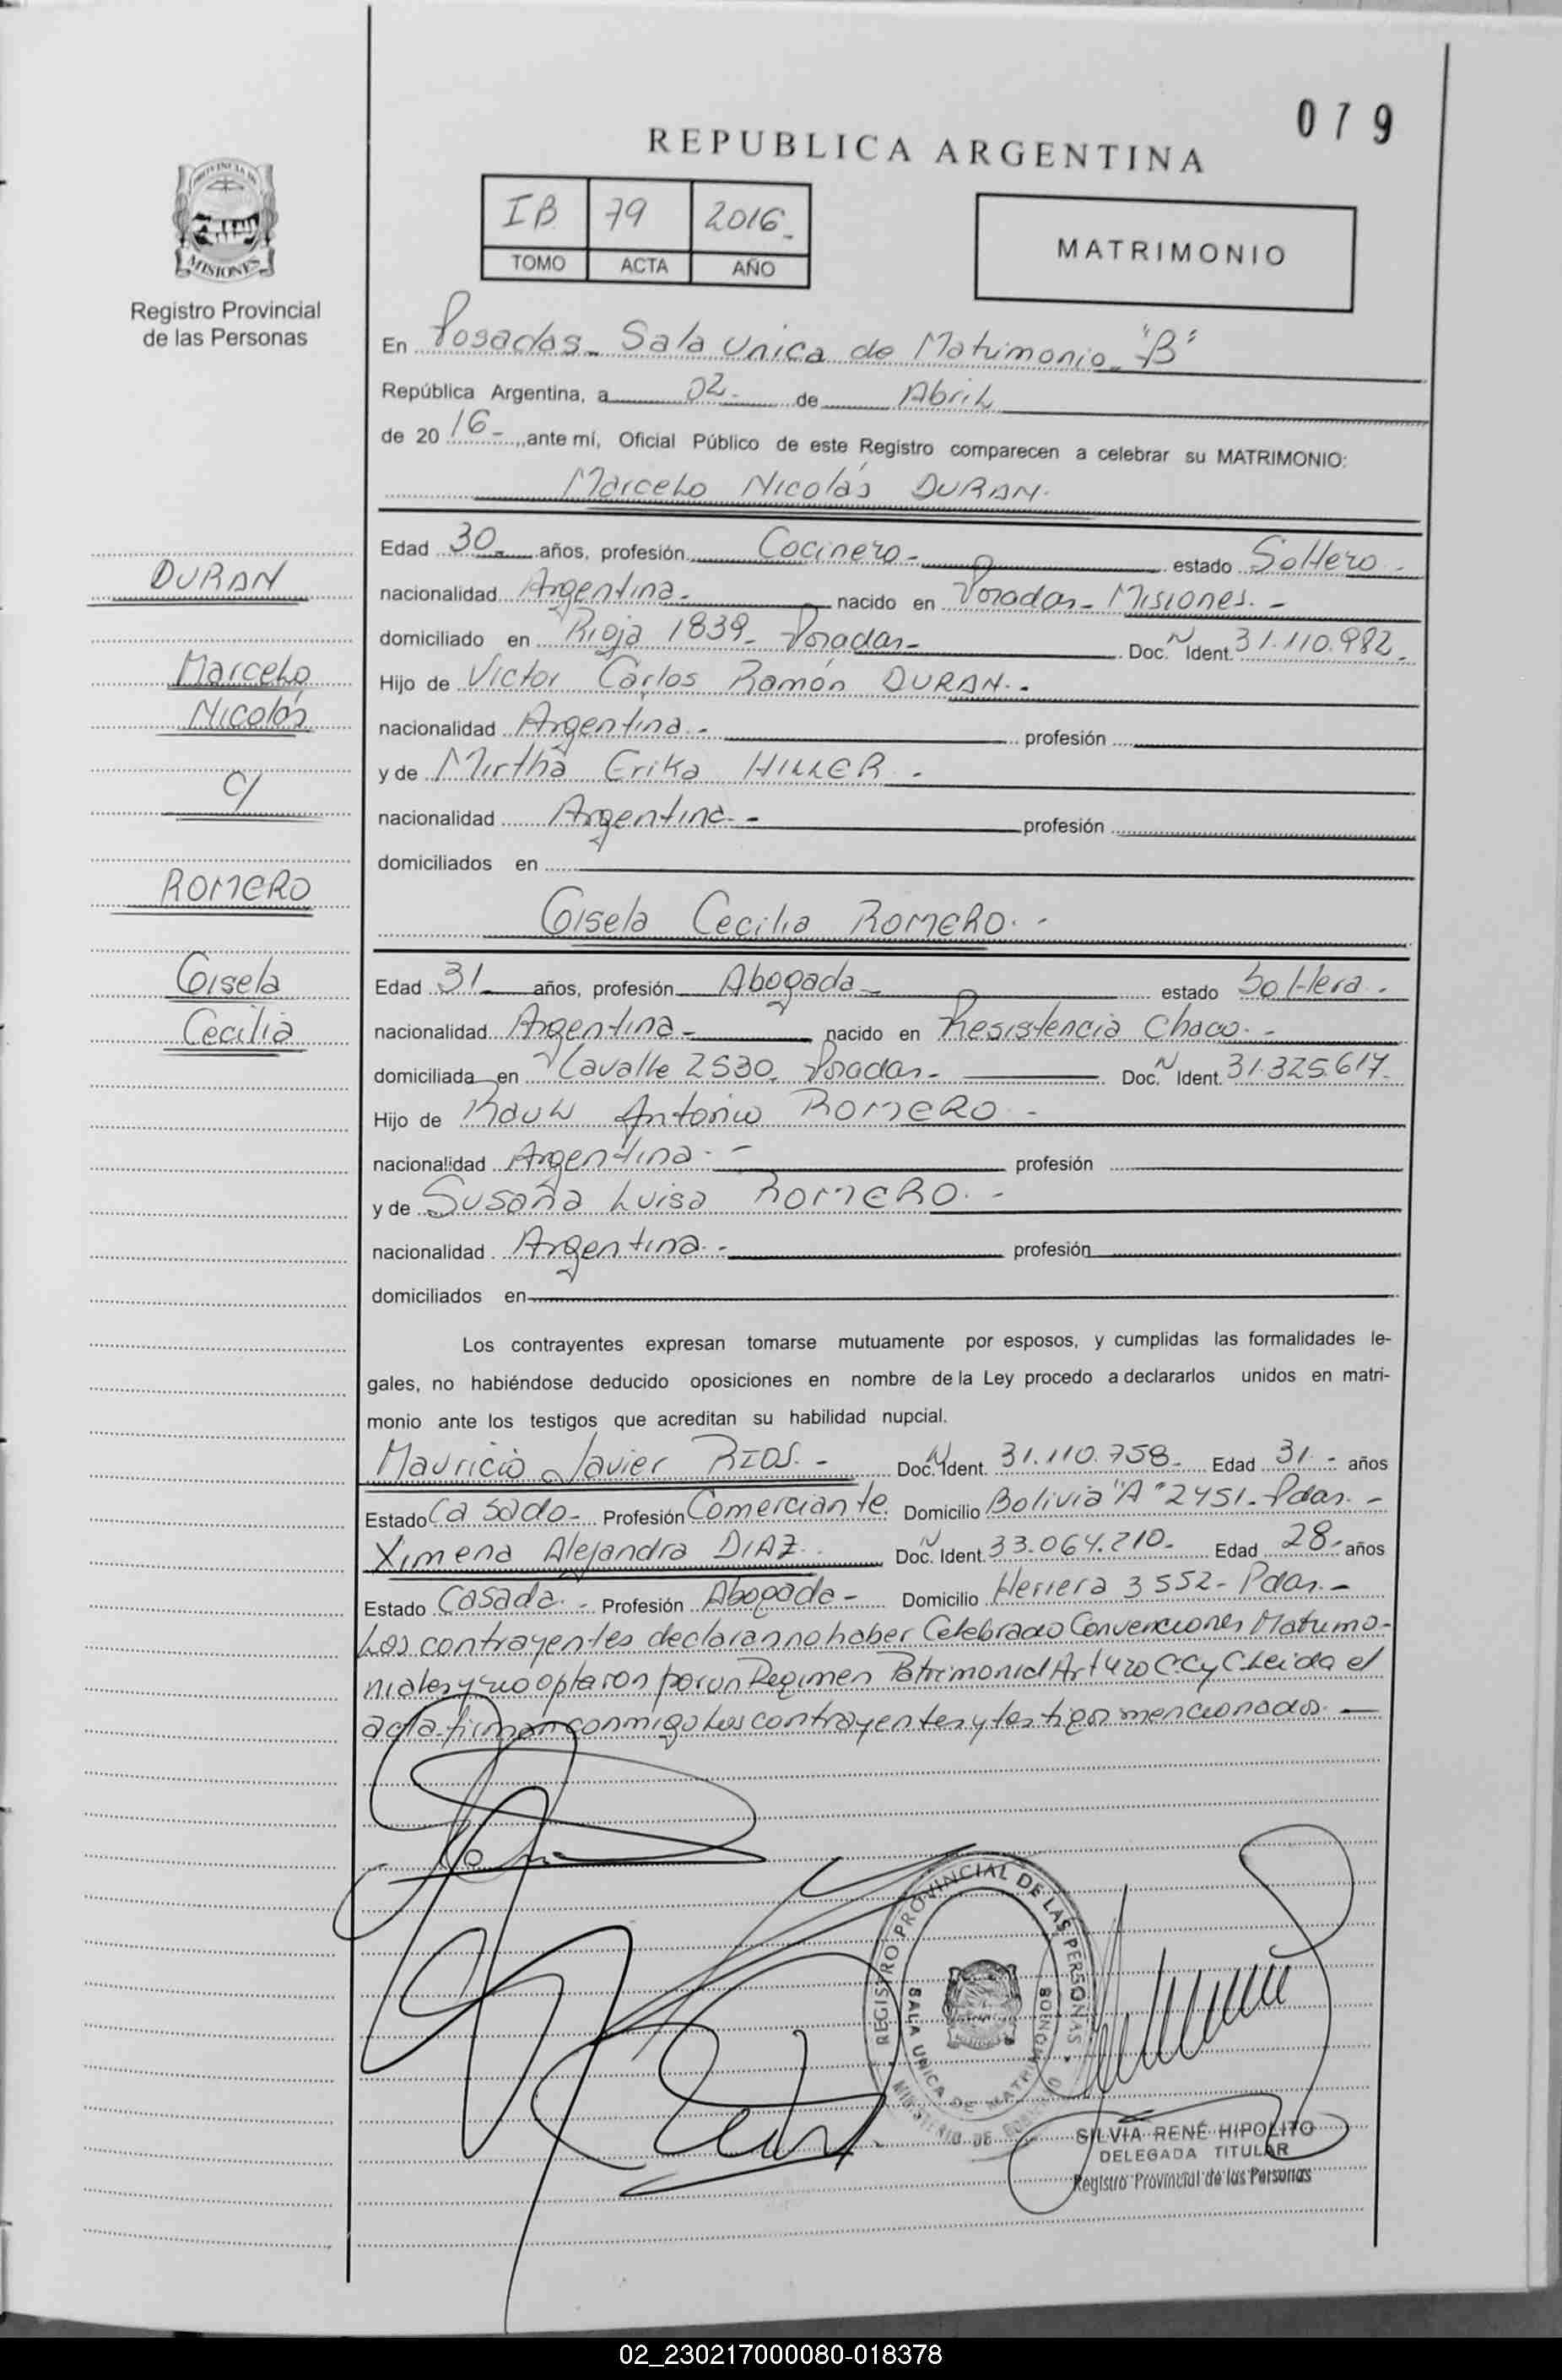 079
REPUBLICA ARGENTINA
IB 79 2016
TOMO ACTA AÑO
MATRIMONIO
PROVINCIA DE
MISIONES
Registro Provincial
de las Personas
En Posadas - Sala Unica de Matrimonio "B"
República Argentina, a 02 de Abril
de 2016 - ante mí, Oficial Público de este Registro comparecen a celebrar su MATRIMONIO:
Marcelo Nicolás DURAN.
Edad 30 años, profesión Cocinero - estado Soltero -
nacionalidad Argentina - nacido en Posadas - Misiones. -
domiciliado en Rioja 1839 - Posadas - Doc. N Ident. 31.110.982 -
Hijo de Victor Carlos Ramón DURAN. -
nacionalidad Argentina. - profesión
y de Mirtha Erika HILLER. -
nacionalidad Argentina. - profesión
domiciliados en
Gisela Cecilia ROMERO. -
Edad 31 años, profesión Abogada - estado Soltera.
nacionalidad Argentina - nacido en Resistencia Chaco. -
domiciliada en Lavalle 2530. Posadas - Doc. N Ident. 31.325.617 -
Hijo de Raul Antonio ROMERO -
nacionalidad Argentina. - profesión
y de Susana Luisa ROMERO. -
nacionalidad Argentina. - profesión
domiciliados en
DURAN
Marcelo
Nicolás
c/
ROMERO
Gisela
Cecilia
Los contrayentes expresan tomarse mutuamente por esposos, y cumplidas las formalidades le-
gales, no habiéndose deducido oposiciones en nombre de la Ley procedo a declararlos unidos en matri-
monio ante los testigos que acreditan su habilidad nupcial.
Mauricio Javier RIOS. - Doc. N Ident. 31.110.758 - Edad 31 - años
Estado Casado - Profesión Comerciante. Domicilio Bolivia "A" 2451 - Pdas. -
Ximena Alejandra DIAZ. Doc. N Ident. 33.064.210 - Edad 28 - años
Estado Casada. - Profesión Abogada - Domicilio Herrera 3552 - Pdas. -
Los contrayentes declaran no haber Celebrado Convenciones Matrimo-
niales y no optaron por un Regimen Patrimonial Art 420 C.C y C Leida el
acta firman conmigo los contrayentes y testigos mencionados. -
REGISTRO PROVINCIAL DE LAS PERSONAS
SALA UNICA DE MATRIMONIOS
MINISTERIO DE GOBIERNO
SILVIA RENÉ HIPOLITO
DELEGADA TITULAR
Registro Provincial de las Personas
02_230217000080-018378